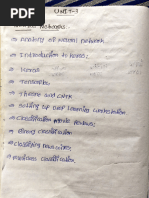 Unit-3
Neural Networks
→ Anatomy of Neural Network
→ Introduction to Keras:
→ Keras
→ Tensorflow
→ Theano and CNTK
→ Setting up Deep Learning Workstation
→ Classification Movie Reviews:
→ Binary Classification
→ Classifying newswires:
→ Multiclass Classification